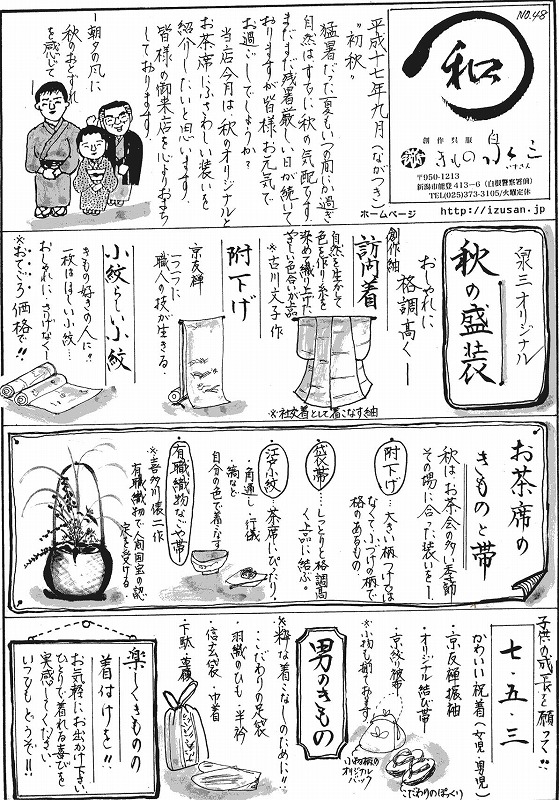 NO.48
和
創作呉服
きもの泉三
いずさん
〒950-1213
新潟市能登413-6(白根警察署前)
TEL(025)373-3105/火曜定休
ホームページ http://izusan.jp
平成十七年九月(ながつき)
"初秋"
猛暑だった夏もいつの間にか過ぎ
自然はすでに秋の気配です。
まだまだ残暑厳しい日が続いて
おりますが皆様お元気で
お過ごしでしょうか?
当店今月は、秋のオリジナルと
お茶席にふさわしい装いを
紹介したいと思います。
皆様の御来店を心よりお待ち
しております。
朝夕の風に
秋のおとずれ
を感じて
泉三オリジナル
秋の盛装
おしゃれに
格調高く
創作紬
訪問着
自然を生かして
色を作り糸を
染めて織り上げた
やさしい色合いが品
※古川文子作
※社交着として着こなす紬
附下げ
京友禅
一つ一つに
職人の技が生きる。
小紋らしい小紋
きもの好きの人に!!
一枚はほしい小紋…
おしゃれに、さりげなく
※おてごろ価格で!!
お茶席の
きものと帯
秋はお茶会の多い季節
その場に合った装いを
附下げ…大きい柄つけではなくて、小づけの柄で
格のあるもの。
袋帯…しっとりと格調高く上品に結ぶ。
江戸小紋…茶席にぴったり
・角通し・行儀
・縞など
自分の色で着こなす
有職織物なごや帯
※喜多川俵二作
有職織物で人間国宝の認定を受ける
子供の成長を願って!!
七・五・三
かわいい祝着(女児・男児)
・京友禅振袖
・オリジナル結び帯
・京絞り被布
※小物も揃えてあります
小物柄の
オリジナル
バック
こだわりのぽっくり
男のきもの
※粋な着こなしのために!!
・こだわりの足袋
・羽織のひも・半衿
・信玄袋・巾着
・下駄・草履
楽しくきものの
着付けを!!
お気軽にお出かけ下さい
ひとりで着れる喜びを
実感してください。
いつもどうぞ!!